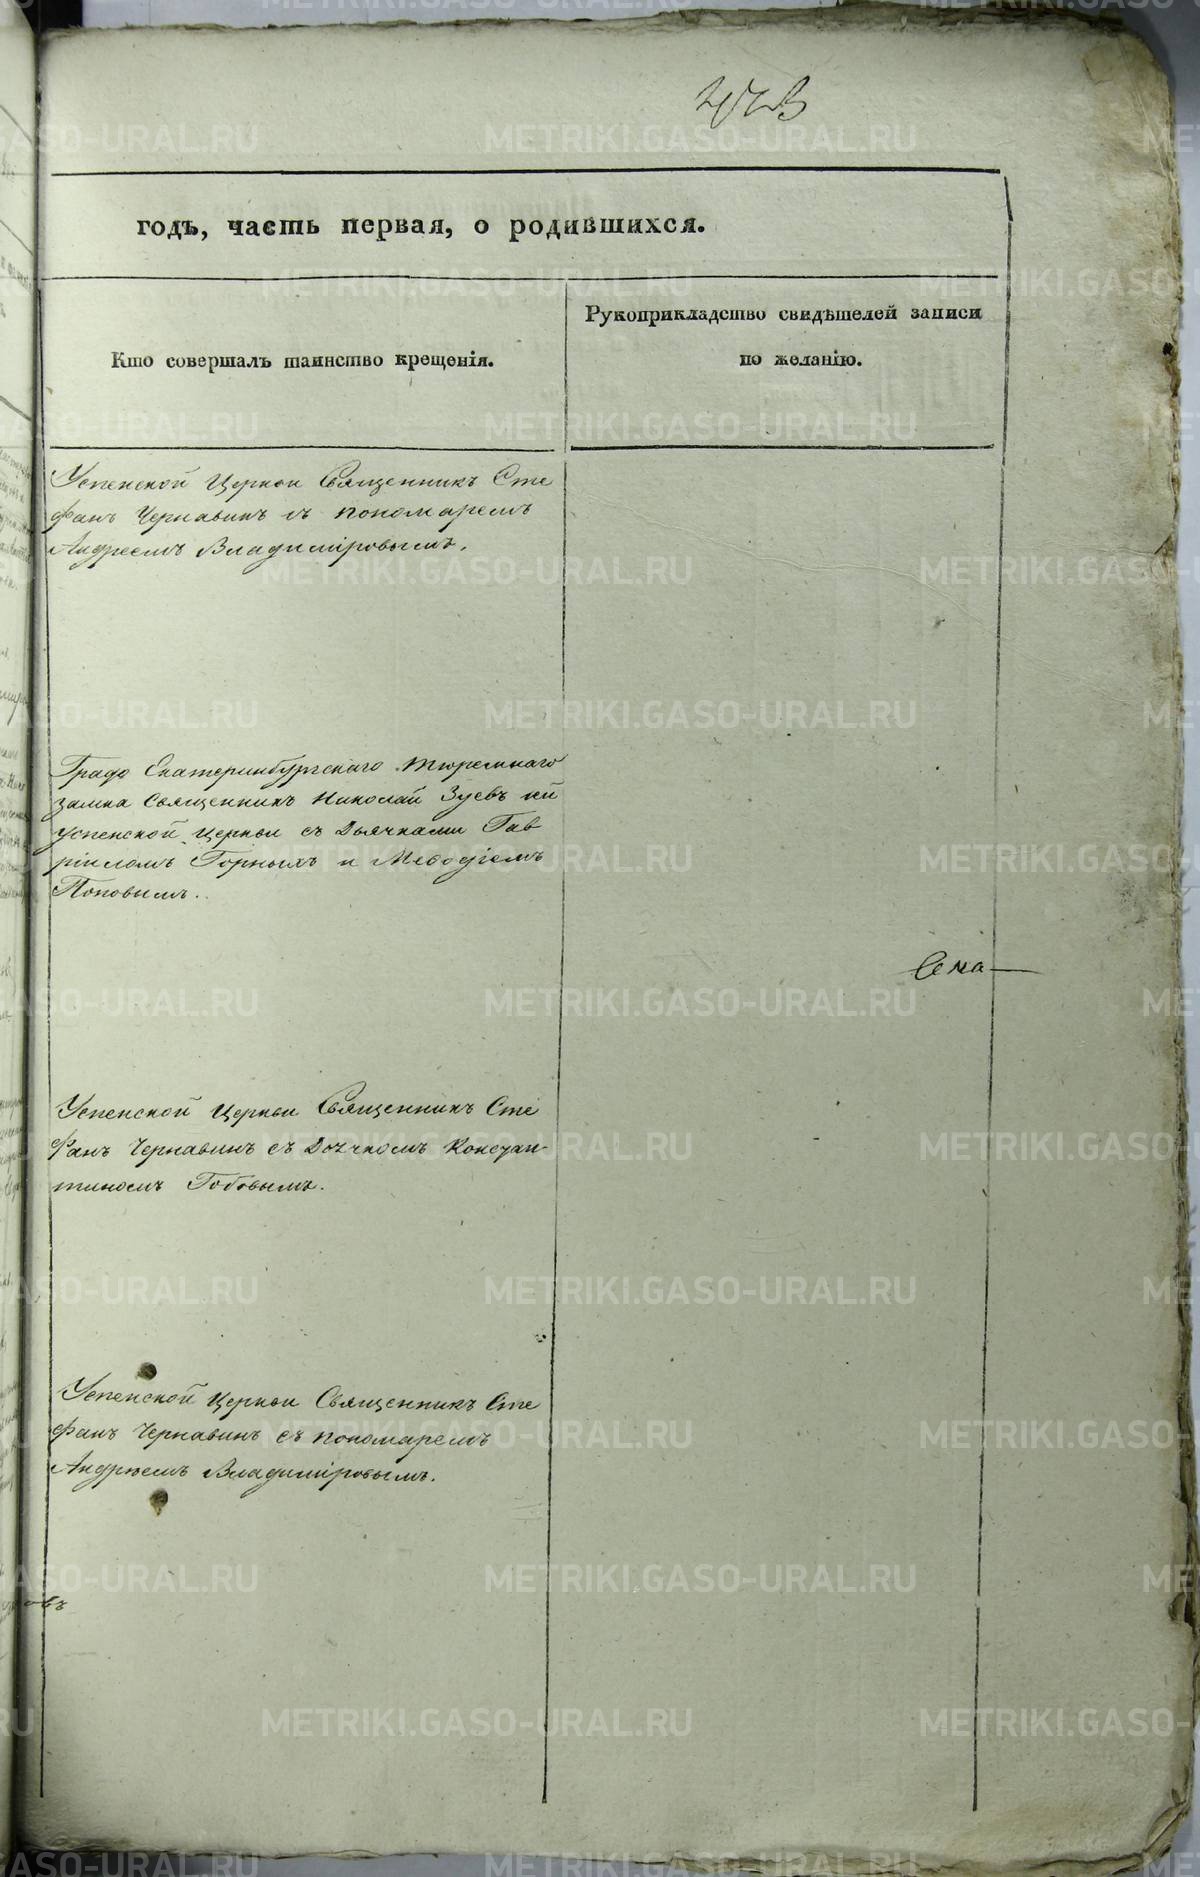 годъ, часть первая, о родившихся.
Кто совершалъ таинство крещенія.
Рукоприкладство свидѣтелей записи
по желанію.
Успенской Церкви Священникъ Сте
фанъ Чернавинъ съ пономаремъ
Андреемъ Владиміровымъ.
Градо Екатеринбургскаго тюремнаго
замка Священникъ Николай Зуевъ
Успенской Церкви съ Дьячками Гав
ріиломъ Горныхъ и Меѳодіемъ
Поповымъ.
Сма
Успенской Церкви Священникъ Сте
фанъ Чернавинъ съ Дьячкомъ Констан-
тиномъ
Успенской Церкви Священникъ Сте
фанъ Чернавинъ съ пономаремъ
Андрѣемъ Владиміровымъ.
METRIKI.GASO-URAL.RU